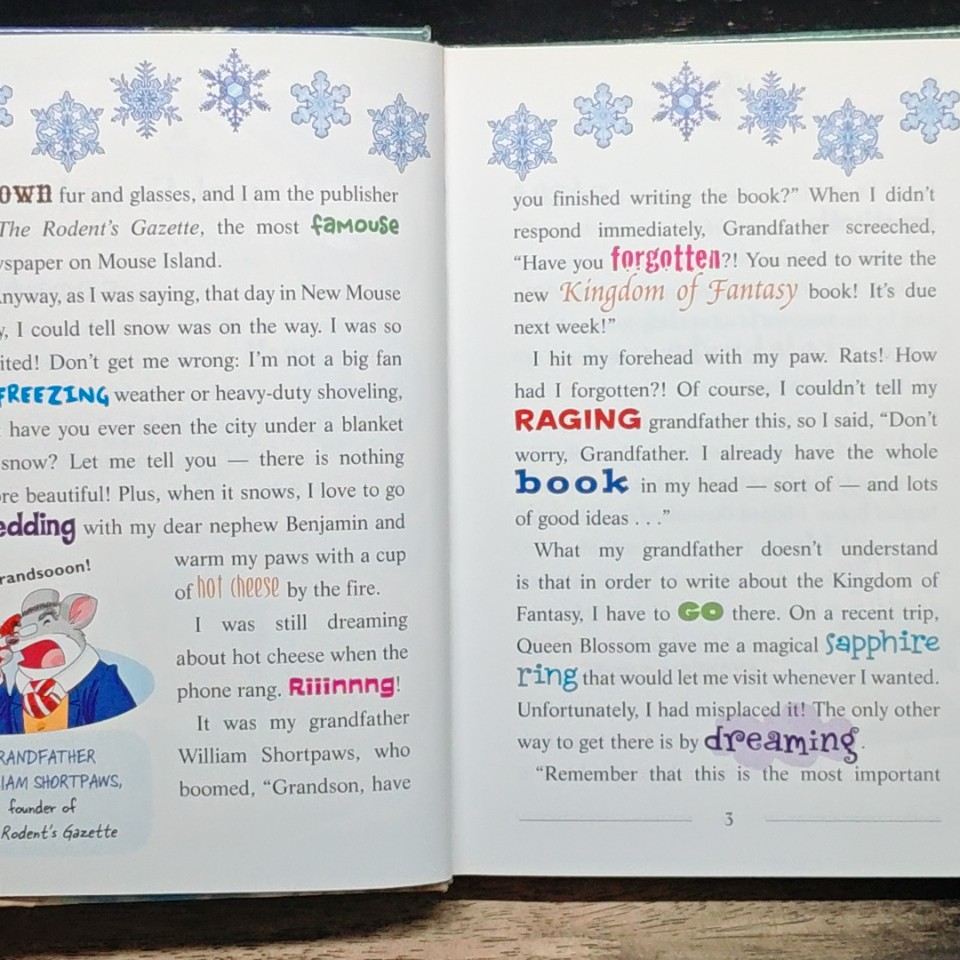 own fur and glasses, and I am the publisher
The Rodent's Gazette, the most famouse
spaper on Mouse Island.
nyway, as I was saying, that day in New Mouse
y, I could tell snow was on the way. I was so
ited! Don't get me wrong: I'm not a big fan
FREEZING weather or heavy-duty shoveling,
have you ever seen the city under a blanket
snow? Let me tell you — there is nothing
re beautiful! Plus, when it snows, I love to go
edding with my dear nephew Benjamin and
warm my paws with a cup
of hot cheese by the fire.
I was still dreaming
about hot cheese when the
phone rang. Riiinnng!
It was my grandfather
William Shortpaws, who
boomed, “Grandson, have
randsooon!
RANDFATHER
IAM SHORTPAWS,
founder of
Rodent's Gazette
you finished writing the book?” When I didn't
respond immediately, Grandfather screeched,
“Have you forgotten?! You need to write the
new Kingdom of Fantasy book! It's due
next week!”
I hit my forehead with my paw. Rats! How
had I forgotten?! Of course, I couldn't tell my
RAGING grandfather this, so I said, “Don't
worry, Grandfather. I already have the whole
book in my head — sort of — and lots
of good ideas . . .”
What my grandfather doesn't understand
is that in order to write about the Kingdom of
Fantasy, I have to GO there. On a recent trip,
Queen Blossom gave me a magical sapphire
ring that would let me visit whenever I wanted.
Unfortunately, I had misplaced it! The only other
way to get there is by dreaming.
“Remember that this is the most important
3